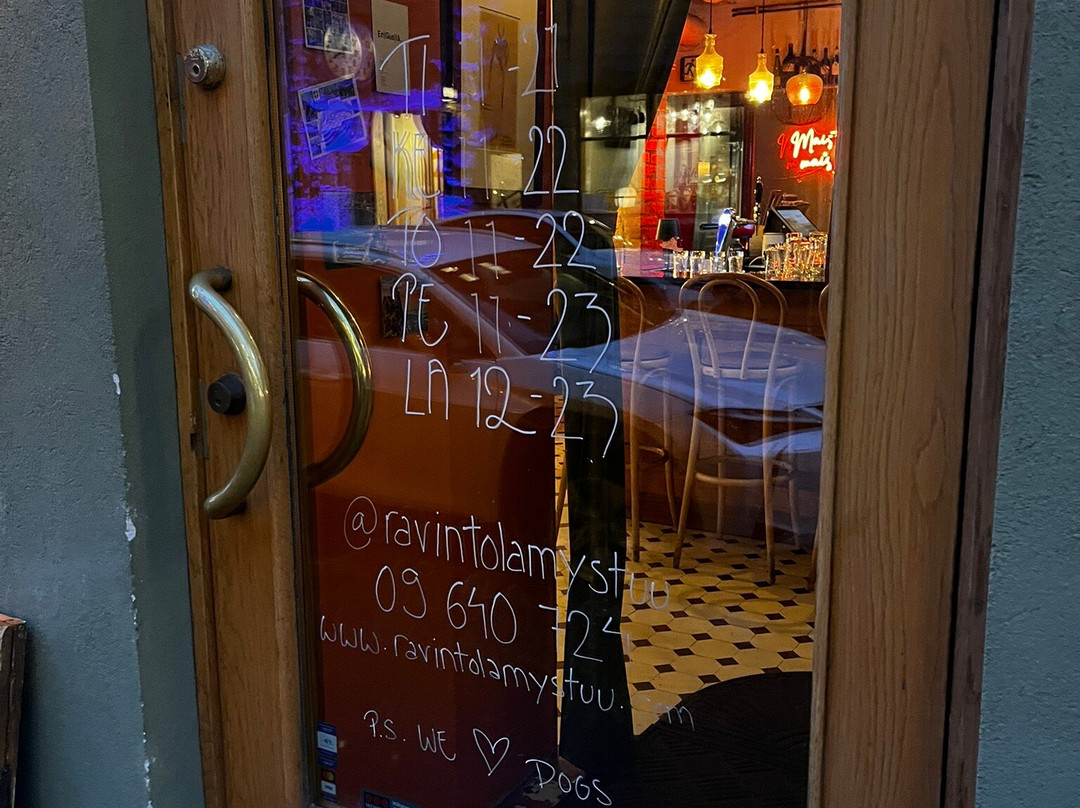 TI 11-21
KE 11-22
TO 11-22
PE 11-23
LA 12-23
@ravintolamystuu
09 640 724
www.ravintolamystuu.com
P.S. WE ♡ DOGS
Mais
mais